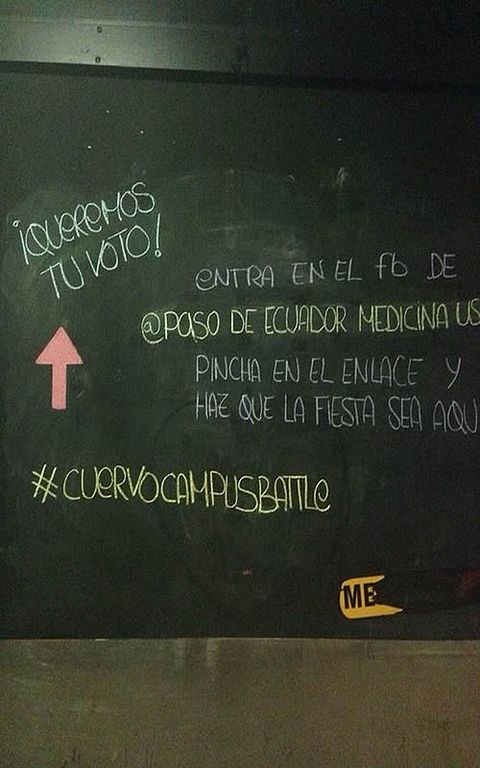 ¡QUEREMOS
TU VOTO!
ENTRA EN EL fb DE
@PASO DE ECUADOR MEDICINA US
PINCHA EN EL ENLACE Y
HAZ QUE LA FIESTA SEA AQU
#CUERVOCAMPUSBATTLE
ME